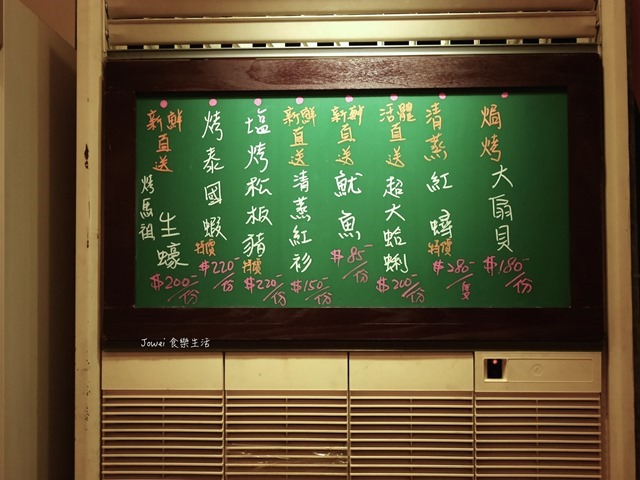 焗烤大扇貝
$180-/份
清蒸紅蟳
特價
$280-/隻
活體直送超大蛤蜊
$200-/份
新鮮直送魷魚
$85-/份
新鮮直送清蒸紅衫
$150-/份
塩烤松板豬
特價
$220-/份
烤泰國蝦
特價
$220-/份
新鮮直送
烤馬祖生蠔
$200-/份
Jowei 食樂生活